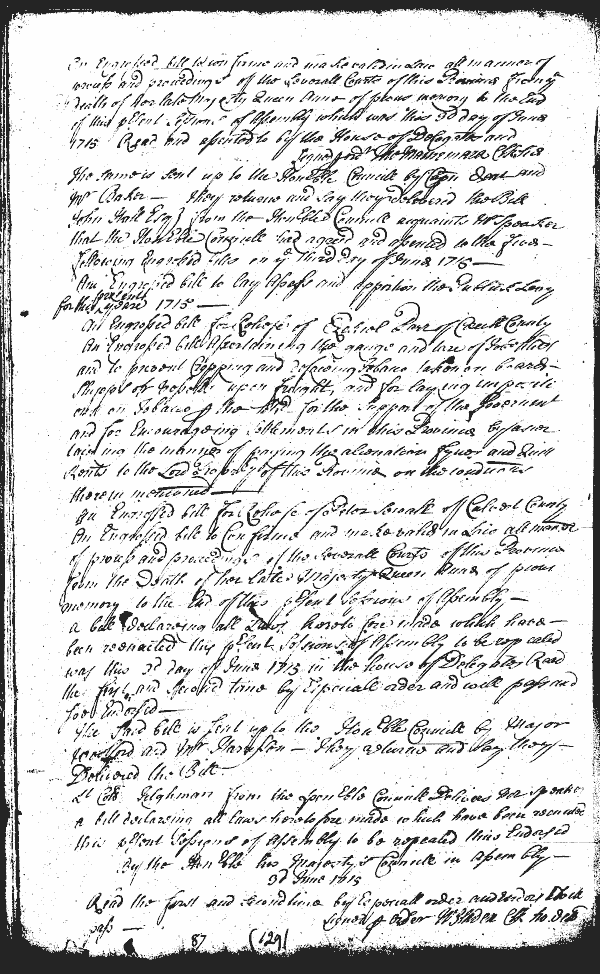 An Engrossed bill to confirme and make valid in Law all manner of
process and proceedings of the severall Courts of this Province from ye
Death of Her late Majesty Queen Anne of pious memory to the End
of this pSent Sessions of Assembly which was this 3d day of June
1715 Read and assented to by the House of Delegates and
Signed pr ordr
The same is sent up to the Honble Councill by and
Mr Baker — They returne and say they delivered the Bill
John Hall Esqr from the Honble Councill acquaints Mr Speaker
that the Honble Councill had agreed and assented to the five —
following Engrossed bills on ye third day of June 1715 —
An Engrossed bill to lay Assess and apportion the Publick Levy
for this present yeare 1715 —
An Engrossed bill for Reliefe of Ezekiel of Cecill County
An Engrossed bill Ascertaining the gauge and tare of Tobo hhds
and to prevent Cropping and defaceing Tobaco taken on board —
Shipps or Vessells upon freight, and for laying impositi
ons on Tobacco p the hhd for the Support of the Governmt
and for Encourageing Settlements in this Province by ascer
taining the manner of paying the alienation fynes and Quit
Rents to the Lord Propry of this Province on the conditions
therein mentioned —
An Engrossed bill for Reliefe of Peter Sewall of Calvert County
An Engrossed bill to Confirme and make valid in Law all manner
of process and proceedings of the Severall Courts of this Province
from the Death of her Late Majesty Queen Anne of pious
memory to the End of this pSent Sessions of Assembly —
a bill declareing all Laws heretofore made which have —
been reenacted this pSent Sessions of Assembly to be repealed
was this 3d day of June 1715 in the house of Delegates Read
the first and Second time by Especiall order and will pass and
soe Endorsed —
The Said bill is Sent up to the Honble Councill by Major
and Mr — They returne and say they —
Delivered the Bill
Lt Coll Tilghman from the Honble Councill Delivers Mr Speaker
a bill declareing all laws heretofore made which have been reenacted
this pSent Sessions of Assembly to be repealed thus Endorsed
By the Honble his Majestys Councill in Assembly —
3d June 1715
Read the first and Second time by Especiall order and does
pass — Signed p order W Bladen Cl
87 (129)